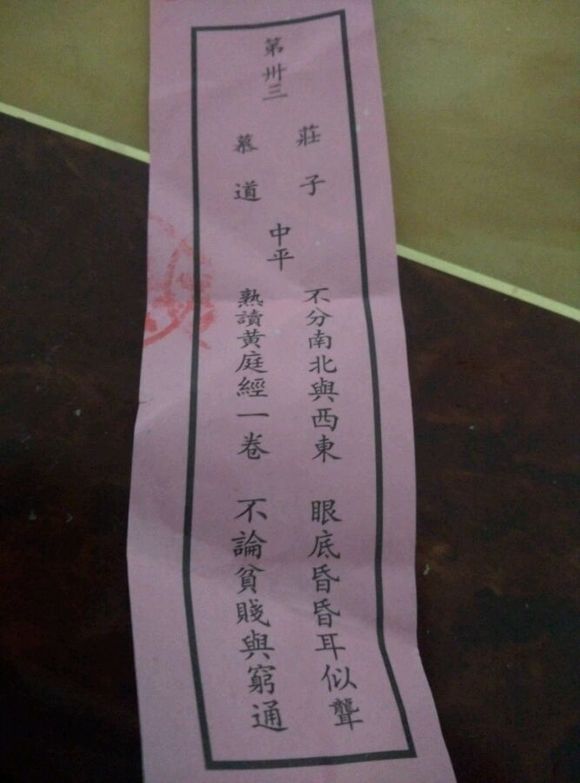 第卅三
莊子
慕道
中平
不分南北與西東 眼底昏昏耳似聾
熟讀黃庭經一卷 不論貧賤與窮通